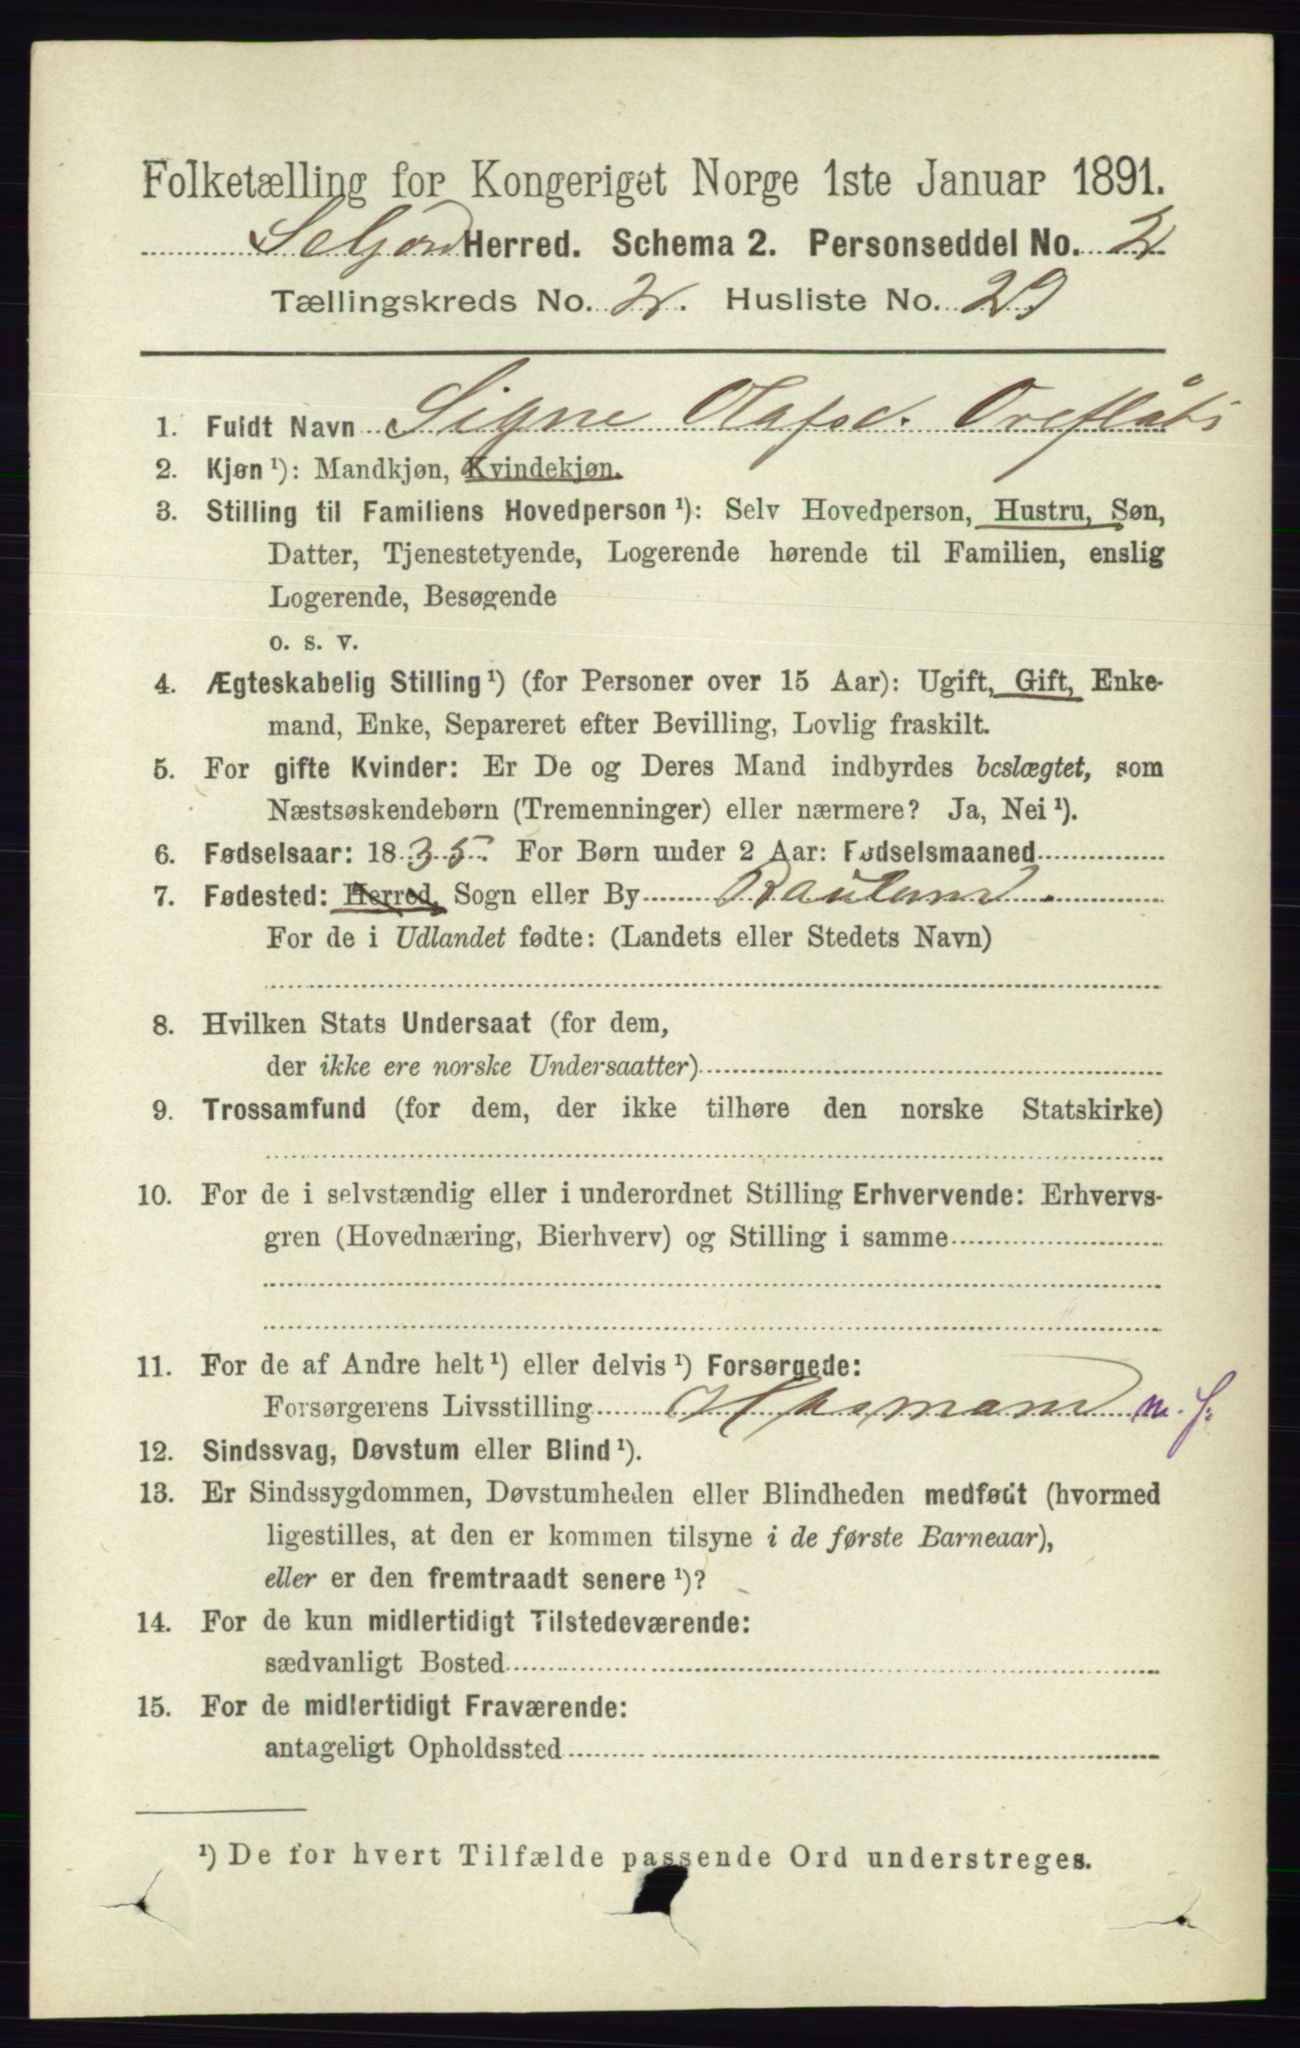 Folketælling for Kongeriget Norge 1ste Januar 1891.
Seljord Herred. Schema 2. Personseddel No. 2
Tællingskreds No. 2. Husliste No. 29
1. Fuldt Navn Signe Olafsd.
2. Kjøn ¹): Mandkjøn, Kvindekjøn.
3. Stilling til Familiens Hovedperson ¹): Selv Hovedperson, Hustru, Søn,
Datter, Tjenestetyende, Logerende hørende til Familien, enslig
Logerende, Besøgende
o. s. v.
4. Ægteskabelig Stilling ¹) (for Personer over 15 Aar): Ugift, Gift, Enke-
mand, Enke, Separeret efter Bevilling, Lovlig fraskilt.
5. For gifte Kvinder: Er De og Deres Mand indbyrdes beslægtet, som
Næstsøskendebørn (Tremenninger) eller nærmere? Ja, Nei ¹).
6. Fødselsaar: 1835. For Børn under 2 Aar: Fødselsmaaned
7. Fødested: Herred, Sogn eller By Rauland.
For de i Udlandet fødte: (Landets eller Stedets Navn)
8. Hvilken Stats Undersaat (for dem,
der ikke ere norske Undersaatter)
9. Trossamfund (for dem, der ikke tilhøre den norske Statskirke)
10. For de i selvstændig eller i underordnet Stilling Erhvervende: Erhvervs-
gren (Hovednæring, Bierhverv) og Stilling i samme
11. For de af Andre helt ¹) eller delvis ¹) Forsørgede:
Forsørgerens Livsstilling Husmand m. J.
12. Sindssvag, Døvstum eller Blind ¹).
13. Er Sindssygdommen, Døvstumheden eller Blindheden medfødt (hvormed
ligestilles, at den er kommen tilsyne i de første Barneaar),
eller er den fremtraadt senere ¹)?
14. For de kun midlertidigt Tilstedeværende:
sædvanligt Bosted
15. For de midlertidigt Fraværende:
antageligt Opholdssted
¹) De for hvert Tilfælde passende Ord understreges.